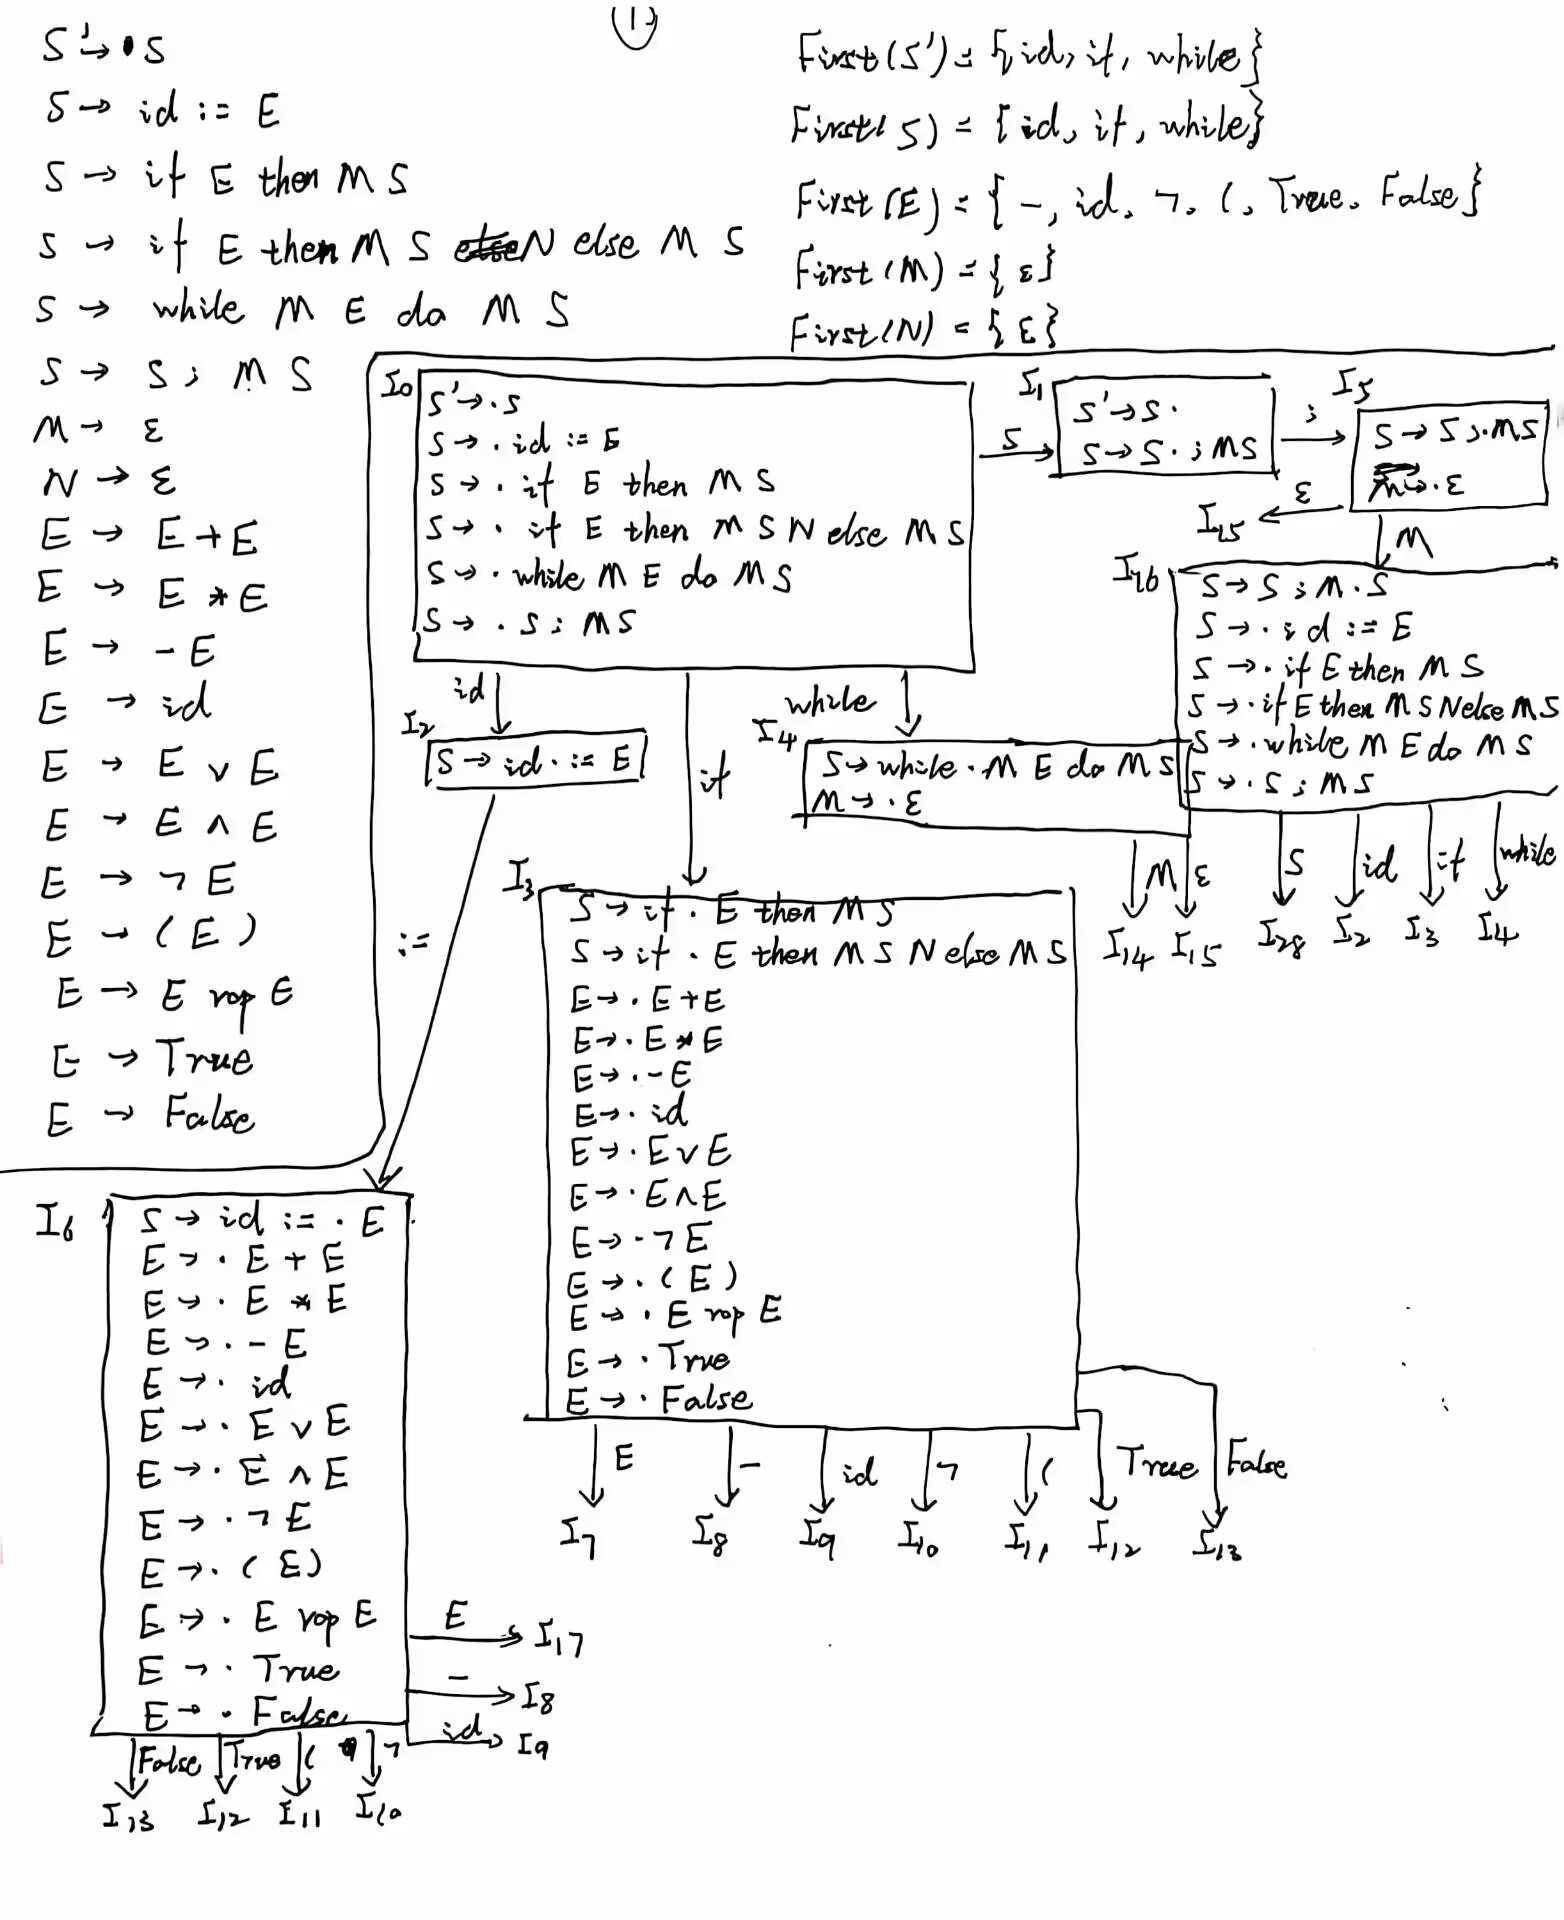 (1)
S'→·S
S→ id := E
S→ if E then M S
S → if E then M S N else M S
S → while M E do M S
S → S ; M S
M→ ε
N → ε
E → E + E
E → E * E
E → - E
E → id
E → E ∨ E
E → E ∧ E
E → ¬ E
E → ( E )
E → E rop E
E → True
E → False
First(S') = {id, if, while}
First(S) = {id, if, while}
First(E) = {-, id, ¬, (, True, False}
First(M) = {ε}
First(N) = {ε}
I0
S'→·S
S→·id := E
S→·if E then M S
S→·if E then M S N else M S
S→·while M E do M S
S→·S; MS
S
I1
S'→S·
S→S·; MS
;
I5
S→S;·MS
M→·ε
ε
I15
M
I26
S→S;M·S
S→·id := E
S→·if E then M S
S→·if E then M S N else M S
S→·while M E do M S
S→·S; MS
S
id
if
while
I28
I2
I3
I4
id
I2
S→id· := E
if
while
I4
S→while·M E do M S
M→·ε
M
ε
I14
I15
:=
I3
S→if·E then M S
S→if·E then M S N else M S
E→·E+E
E→·E*E
E→·-E
E→·id
E→·E∨E
E→·E∧E
E→·¬E
E→·(E)
E→·E rop E
E→·True
E→·False
E
-
id
¬
(
True
False
I7
I8
I9
I10
I11
I12
I13
I6
S→id :=·E
E→·E + E
E→·E * E
E→·- E
E→·id
E→·E ∨ E
E→·E ∧ E
E→·¬ E
E→·( E )
E→·E rop E
E→·True
E→·False
E
I17
-
I8
id
I9
False
True
(
¬
I13
I12
I11
I10